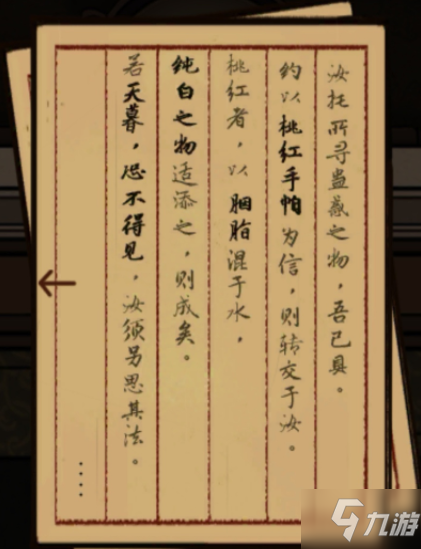 汝托所寻蛊蔽之物，吾已具。
约以桃红手帕为信，则转交于汝。
桃红者，以胭脂混于水，
纯白之物适添之，则成矣。
若天暮，恐不得见，汝须另思其法。
....
九游